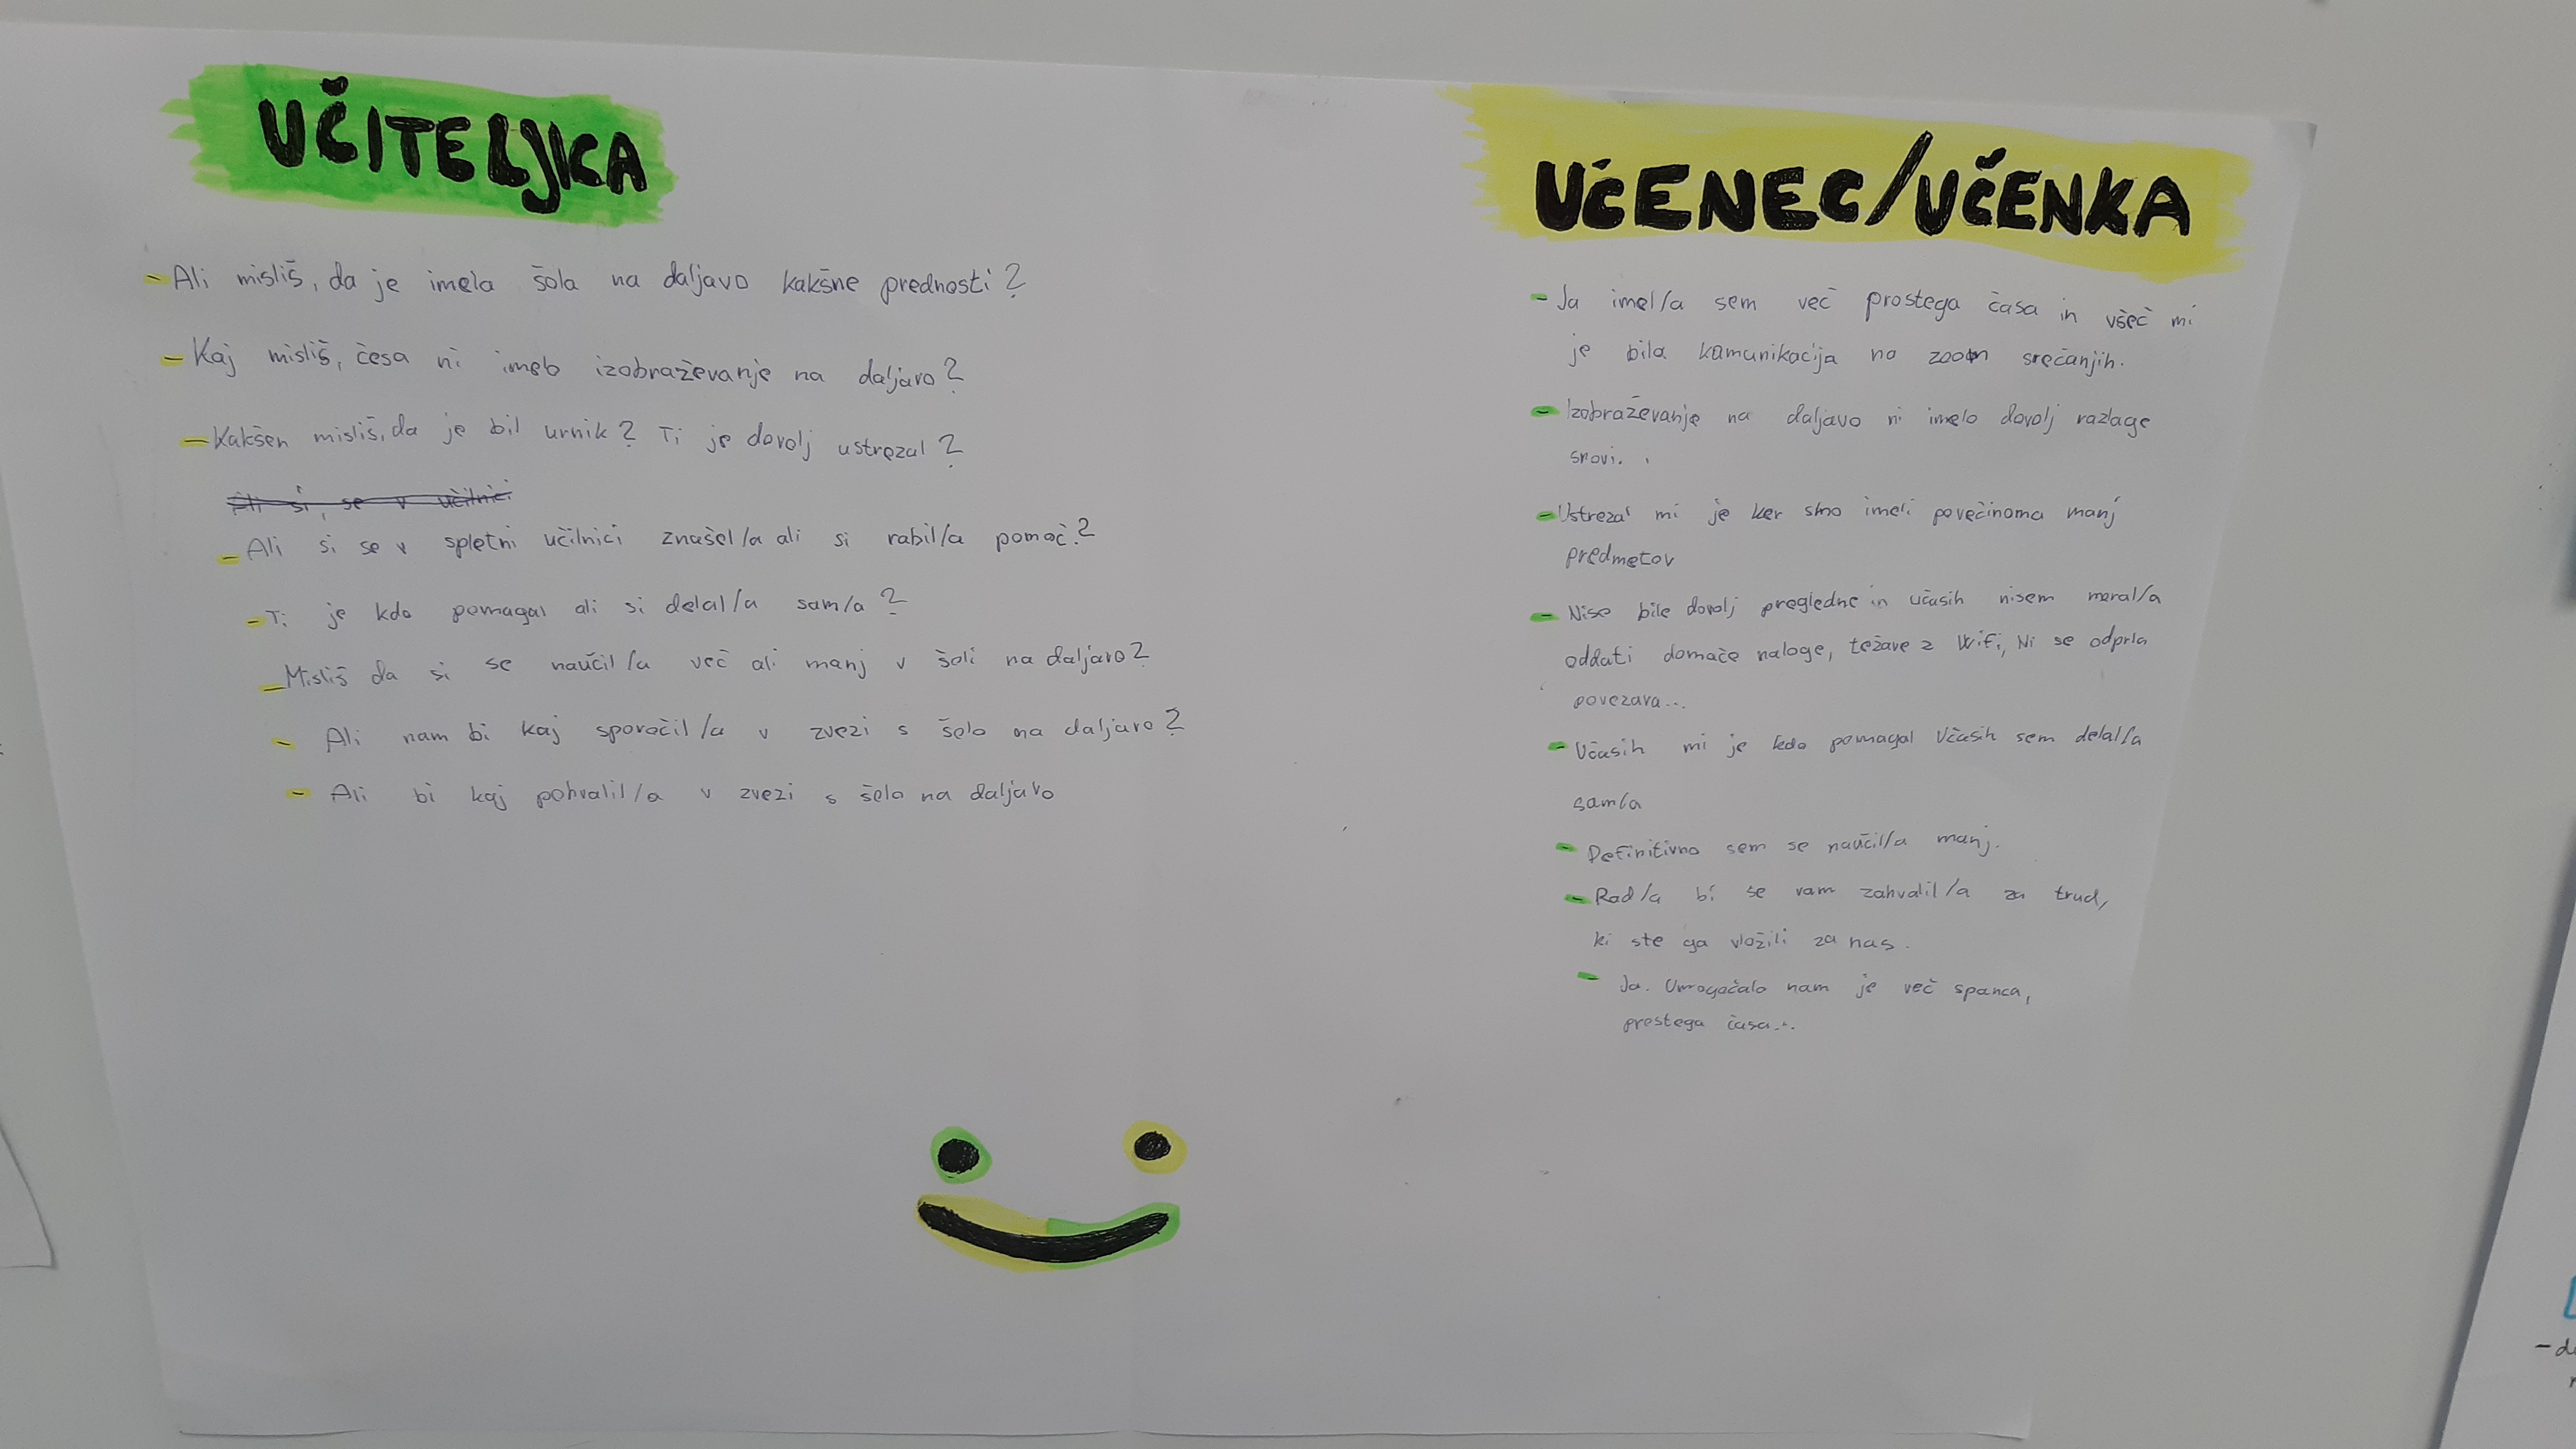 UČITELJICA
- Ali misliš, da je imela šola na daljavo kakšne prednosti?
- Kaj misliš, česa ni imelo izobraževanje na daljavo?
- Kakšen misliš, da je bil urnik? Ti je dovolj ustrezal?
Ali si, se v učilnici
- Ali si se v spletni učilnici znašel/a ali si rabil/a pomoč?
- Ti je kdo pomagal ali si delal/a sam/a?
- Misliš da si se naučil/a več ali manj v šoli na daljavo?
- Ali nam bi kaj sporočil/a v zvezi s šolo na daljavo?
- Ali bi kaj pohvalil/a v zvezi s šolo na daljavo
UČENEC/UČENKA
- Ja imel/a sem več prostega časa in všeč mi
je bila komunikacija na zoom srečanjih.
- Izobraževanje na daljavo ni imelo dovolj razlage
snovi.
- Ustrezal mi je ker smo imeli povečinoma manj
predmetov
- Niso bile dovolj pregledne in včasih nisem moral/a
oddati domače naloge, težave z Wifi, Ni se odprla
povezava...
- Včasih mi je kdo pomagal Včasih sem delal/a
sam/a
- Definitivno sem se naučil/a manj.
- Rad/a bi se vam zahvalil/a za trud,
ki ste ga vložili za nas.
- Ja. Omogočalo nam je več spanca,
prostega časa...